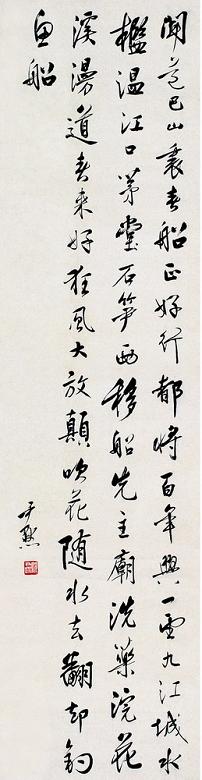 聞道巴山裏春船正好行都將百年興一望九江城水
檻温江口茅堂石筍西移船先主廟洗藥浣花
溪漫道春來好狂風大放顛吹花随水去翻却釣
魚船
尹默